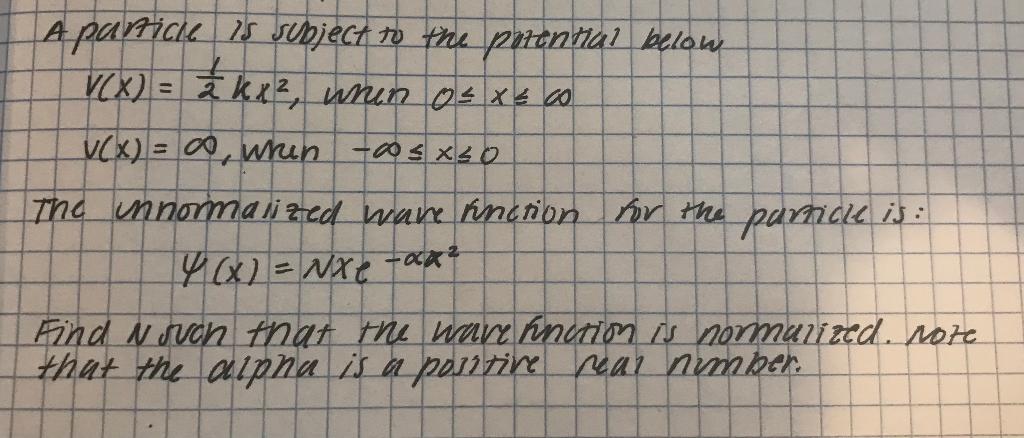 A particle is subject to the potential below
V(x) = 1/2 kx², when 0 ≤ x ≤ ∞
V(x) = ∞, when -∞ ≤ x ≤ 0
The unnormalized wave function for the particle is:
Ψ(x) = Nxe^-αx²
Find N such that the wave function is normalized. Note
that the alpha is a positive real number.